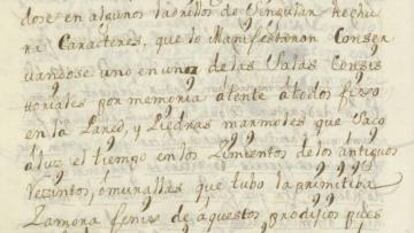 dose en algunos ladrillos de singular hechu
ra Caracteres, que lo Manifestaron Conser
uandose uno en una de las Salas Consis
toriales por memoria atente atodos fixo
en la Pared, y Piedras marmoles que Saco
a luz el tiempo en los Zimientos de los antiguos
rezintos, o murallas que tubo la primitiba
Zamora fenix de aquestos prodijios pues